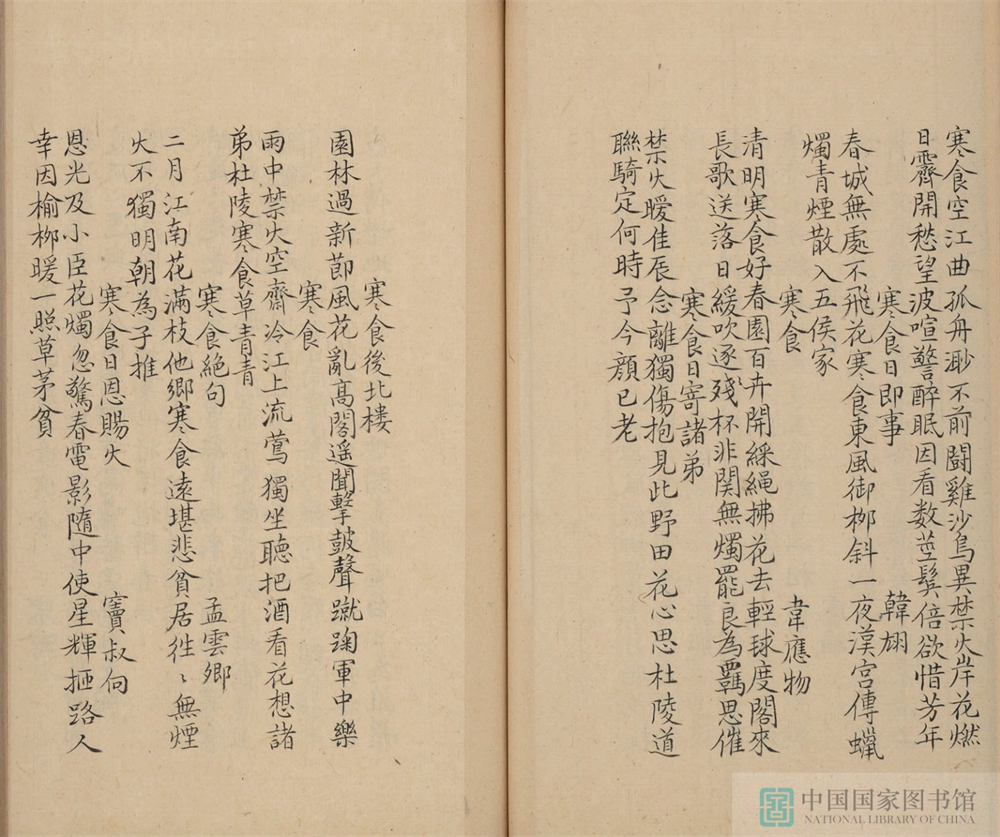 寒食空江曲孤舟渺不前鬪雞沙鳥異禁火岸花燃
日霽開愁望波喧警醉眠因看数莖鬂倍欲惜芳年
寒食日即事 韓翃
春城無處不飛花寒食東風御栁斜一夜漢宮傳蠟
燭青煙散入五侯家
寒食 韋應物
清明寒食好春園百卉開綵繩拂花去輕球度閣來
長歌送落日緩吹逐殘杯非関無燭罷良為羈思催
寒食日寄諸弟
禁火曖佳辰念離獨傷抱見此野田花心思杜陵道
聯騎定何時予今顔已老
寒食後北楼
園林過新節風花亂高閣遥聞擊鼓聲蹴踘軍中樂
寒食
雨中禁火空齋冷江上流鶯獨坐聽把酒看花想諸
弟杜陵寒食草青青
寒食絕句 孟雲卿
二月江南花滿枝他鄉寒食遠堪悲貧居徃〻無煙
火不獨明朝為子推
寒食日恩賜火 竇叔向
恩光及小臣花燭忽驚春電影隨中使星輝拒路人
幸因榆栁暖一照草茅貧
中国国家图书馆
NATIONAL LIBRARY OF CHINA